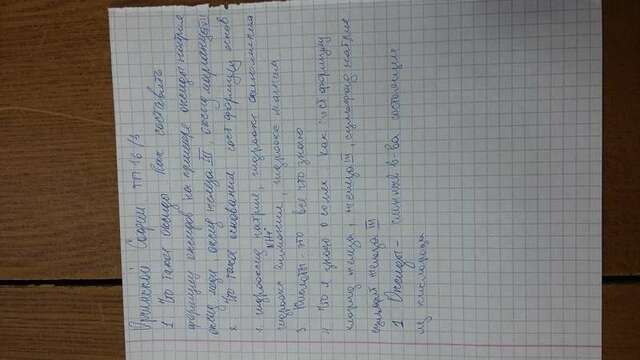 Софии ТП 16/3
1. Что такое оксиды как составлять
формулу оксидов на примере оксиды натрия
оксид меди оксид железа III, оксид марганца
2 Что такое основания сост формулу основ
гидрооксид натрия, гидроокс алюминия
NH4+
гидроокс аммония, гидроокс магния
3 Кислоты - это все что знаю
4 Что я знаю о солях как сост формулу
хлорид железа, железа III, сульфат натрия
сульфат железа III
1 Оксиды - сложные в-ва состоящие
из кислорода